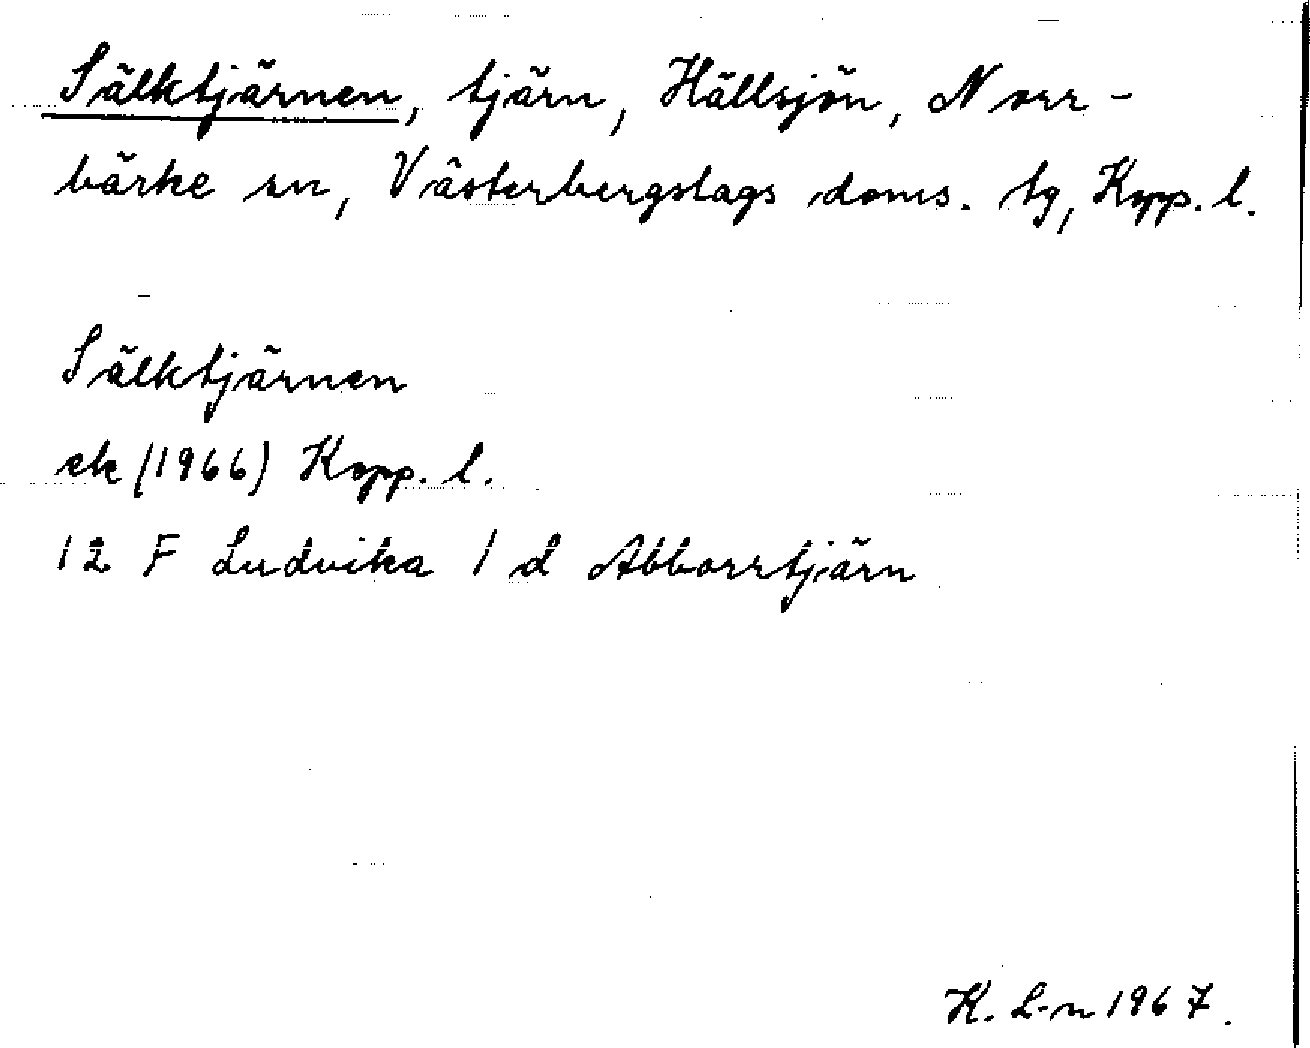 Sälktjärnen, tjärn, Hällsjön, Norr-
bärke sn, Västerbergslags doms. tg, Kopp. l.
Sälktjärnen
ek (1966) Kopp. l.
12 F Ludvika 1 d Abborrtjärn
K. L-n 1967.